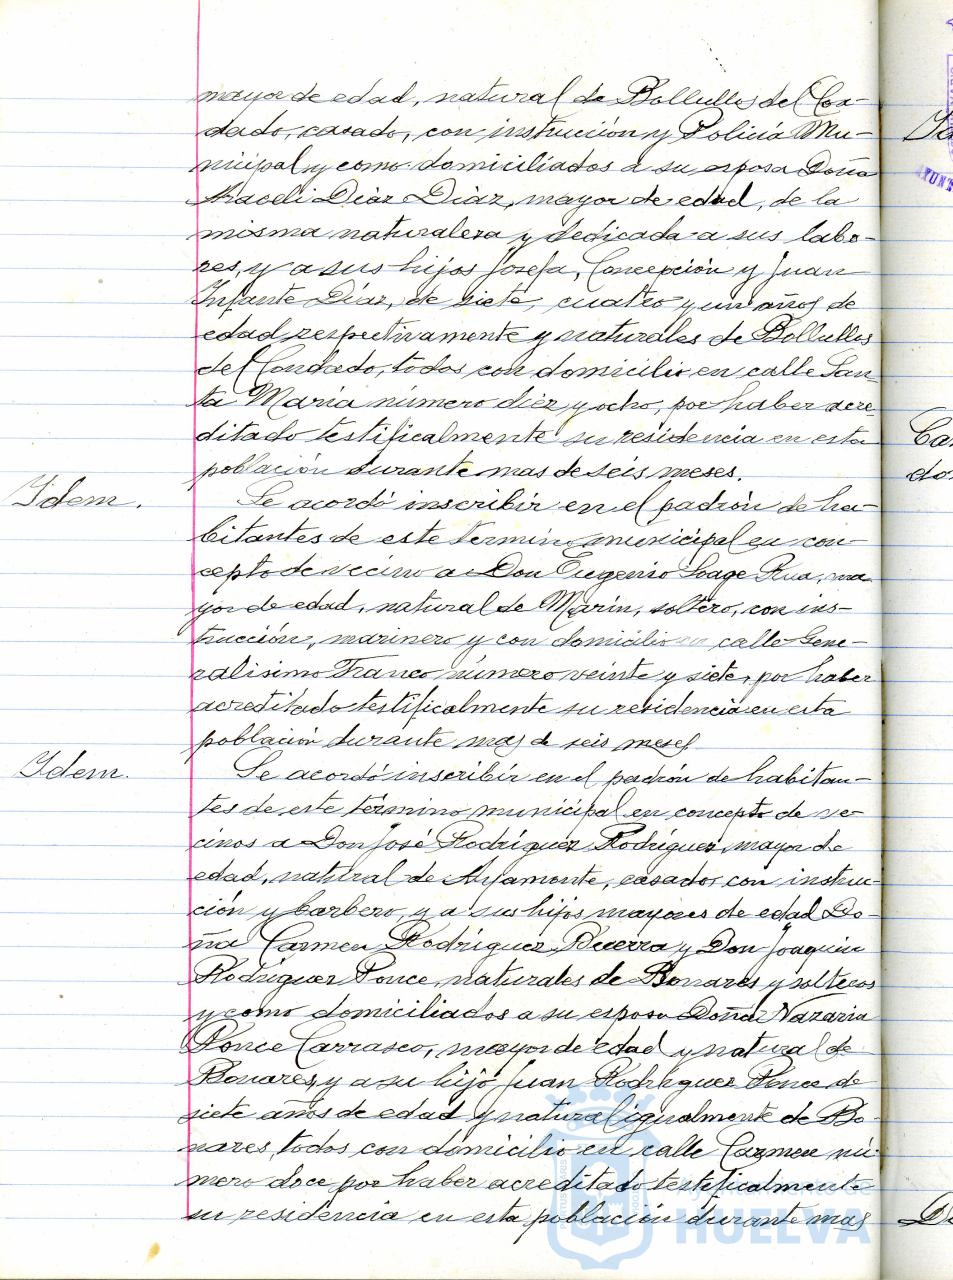 mayor de edad, natural de Bollullos del Con-
dado, casado, con instrucción y Policía Mu-
nicipal y como domiciliados a su esposa Doña
Araceli Díaz Díaz, mayor de edad, de la
misma naturaleza y dedicada a sus labo-
res, y a sus hijos Josefa, Concepción y Juan
Infante Díaz, de siete, cuatro y un años de
edad respectivamente y naturales de Bollullos
del Condado, todos con domicilio en calle San-
ta María número diez y ocho, por haber acre-
ditado testificalmente su residencia en esta
población durante mas de seis meses.
Idem.
Se acordó inscribir en el padrón de ha-
bitantes de este término municipal en con-
cepto de vecino a Don Eugenio Loage Rua, ma
yor de edad, natural de Marín, soltero, con ins-
trucción, marinero y con domicilio en calle Gene-
ralisimo Franco número veinte y siete, por haber
acreditado testificalmente su residencia en esta
población durante mas de seis meses.
Idem.
Se acordó inscribir en el padrón de habitan-
tes de este término municipal en concepto de ve-
cinos a Don José Rodríguez Rodríguez, mayor de
edad, natural de Ayamonte, casado, con instruc-
ción y barbero, y a sus hijos mayores de edad Do-
ña Carmen Rodríguez Becerra y Don Joaquin
Rodríguez Ponce, naturales de Bonares y solteros
y como domiciliados a su esposa Doña Nazaria
Ponce Carrasco, mayor de edad y natural de
Bonares, y a su hijo Juan Rodríguez Ponce de
siete años de edad y natural igualmente de Bo-
nares, todos con domicilio en calle Carmen nú-
mero doce por haber acreditado testificalmente
su residencia en esta población durante mas
Ayuntamiento de
HUELVA